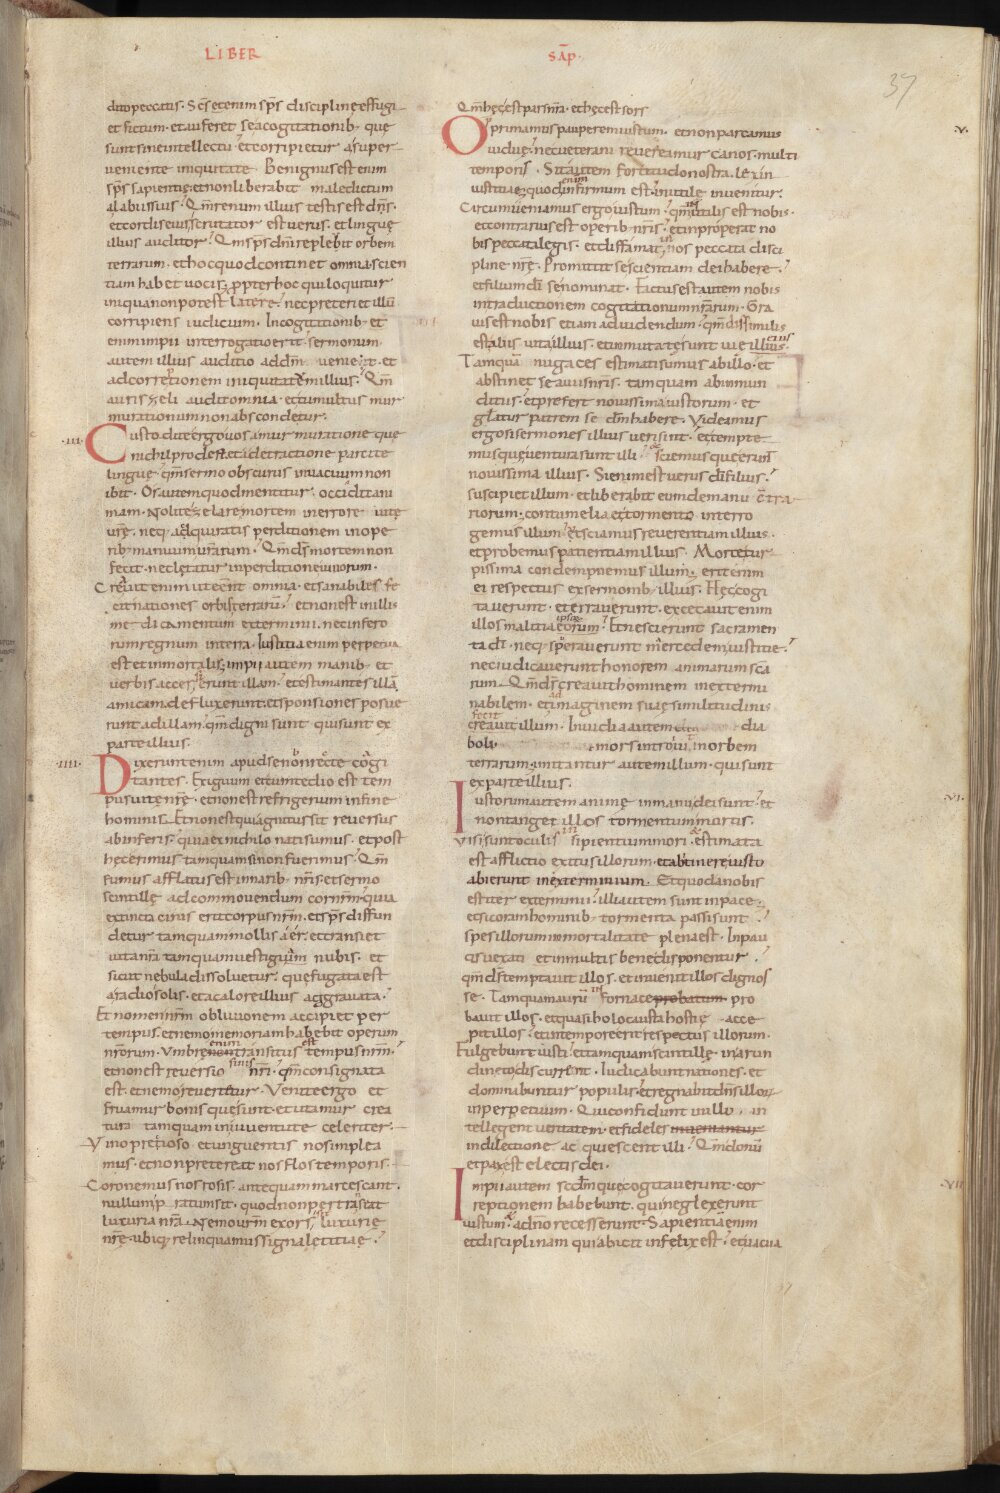 LIBER
SAP̄.
37
dito peccatis. Sc̄s etenim sp̄s disciplinę effugi
et fictum. et auferet se a cogitationib; quę
sunt sine intellectu. et corripietur a super
veniente iniquitate. Benignus est enim
sp̄s sapientię. et non liberabit maledictum
a labiis suis. Qm̄ renum illius testis est dn̄s.
et cordis eius scrutator est verus. et linguę
illius auditor. Qm̄ sp̄s dn̄i replebit orbem
terrarum. et hoc quod continet omnia scien
tiam habet vocis. propter hoc qui loquitur
iniqua non potest latere. nec preteriet illū
corripiens iudicium. In cogitationib; et
enim impii interrogatio erit. sermonum
autem illius auditio ad dm̄ veniet. et
ad correptionem iniquitatem illius. Qm̄
auris zeli audit omnia. et tumultus mur
murationum non abscondetur.
.III.
Custodite ergo vos a murmuratione quę
nichil prodest. et a detractione parcite
linguę. qm̄ sermo obscurus in vacuum non
ibit. Os autem quod mentitur. occidit ani
mam. Nolite zelare mortem in errore vitę
vr̄ę. neq; adquiratis perditionem in ope
rib; manuum vr̄arum. Qm̄ ds̄ mortem non
fecit. nec lętatur in perditione vivorum.
Creavit enim ut essent omnia. et sanabiles fe
cit nationes orbis terrarum. et non est in illis
medicamentum exterminii. nec infero
rum regnum in terra. Iustitia enim perpetua
est et inmortalis. impii autem manib; et
verbis accersierunt illam. et estimantes illā
amicam. defluxerunt. et sponsiones posue
runt ad illam. qm̄ digni sunt qui sunt ex
parte illius.
.IIII.
Dixerunt enim apud se non recte cogi
tantes. Exiguum et cum tedio est tem
pus vitę nr̄ę. et non est refrigerium in fine
hominis. Et non est qui agnitus sit reversus
ab inferis. quia ex nichilo nati sumus. et post
hęc erimus tamquam si non fuerimus. Qm̄
fumus afflatus est in narib; nr̄is. et sermo
scintillę ad commovendum cor nr̄m. quia
extincta cinis erit corpus nr̄m. et sp̄s diffun
detur tamquam mollis aer. et transiet
vita nr̄a tamquam vestigium nubis. et
sicut nebula dissolvetur. quę fugata est
a radio solis. et a calore illius aggravata.
Et nomen nr̄m oblivionem accipiet per
tempus. et nemo memoriam habebit operum
nr̄orum. Umbrę enim transitus est tempus nr̄m.
et non est reversio finis nr̄i. qm̄ consignata
est. et nemo revertetur. Venite ergo et
fruamur bonis quę sunt. et utamur crea
tura tamquam in iuventute celeriter.
Vino precioso et unguentis nos implea
mus. et non pretereat nos flos temporis.
Coronemus nos rosis. antequam marcescant.
nullum pratum sit. quod non pertranseat
luxuria nr̄a. Nemo nr̄m exors sit luxurię
nr̄ę. ubiq; relinquamus signa lętitię.
Qm̄ hęc est pars nr̄a. et hęc est sors
.V.
Opprimamus pauperem iustum. et non parcamus
viduę. nec veterani revereamur canos multi
temporis. Sit autem fortitudo nostra. lex in
iustitię. quod enim infirmum est. inutile invenitur.
Circumveniamus ergo iustum. qm̄ inutilis est nobis.
et contrarius est operib; nr̄is. et inproperat no
bis peccata legis. et diffamat in nos peccata disci
plinę nr̄ę. Promittit se scientiam dei habere.
et filium dī se nominat. Factus est autem nobis
in traductionem cogitationum nr̄arum. Gra
vis est nobis etiam ad videndum. qm̄ dissimilis
est aliis vita illius. et inmutatę sunt vię illius. eius
Tamquam nugaces estimati sumus ab illo. et
abstinet se a viis nr̄is. tamquam ab inmun
ditiis. et prefert novissima iustorum. et
gl̄atur patrem se dm̄ habere. Videamus
ergo si sermones illius veri sint. et tempte
mus quę ventura sunt illi. et sciemus quę erunt
novissima illius. Si enim est verus dī filius.
suscipiet illum. et liberabit eum de manu cōtra
riorum. contumelia et tormento interro
gemus illum. et sciamus reverentiam illius.
et probemus patientiam illius. Morte tur
pissima condempnemus illum. erit enim
ei respectus ex sermonib; illius. Hęc cogi
taverunt. et erraverunt. excecavit enim
illos malitia eorum. ipsorum Et nescierunt sacramen
ta dī. neq; speraverunt mercedem iustitię.
nec iudicaverunt honorem animarum sc̄a
rum. Qm̄ ds̄ creavit hominem inextermi
nabilem. et ad imaginem suę similitudinis
fecit
creavit illum. Invidia autem dia
boli mors introivit in orbem
terrarum. imitantur autem illum. qui sunt
ex parte illius.
.VI.
Iustorum autem animę in manu dei sunt. et
non tanget illos tormentum mortis.
Visi sunt oculis insipientium mori. et estimata
est afflictio exitus illorum. et ab itinere iusto
abierunt in exterminium. Et quod a nobis
est iter exterminii. illi autem sunt in pace.
et si coram hominib; tormenta passi sunt
spes illorum inmortalitate plena est. In pau
cis vexati et in multis bene disponentur.
qm̄ ds̄ temptavit illos. et invenit illos dignos
se. Tamquam aurū in fornace probatum pro
bavit illos. et quasi holocausta hostię acce
pit illos. et in tempore erit respectus illorum.
Fulgebunt iusti. et tamquam scintillę in arun
dineto discurrent. Iudicabunt nationes. et
dominabuntur populis. et regnabit dn̄s illor;
in perpetuum. Qui confidunt in illo. in
tellegent veritatem. et fideles invenientur
in dilectione adquiescent illi. Qm̄ donū
et pax est electis dei.
.VII.
Impii autem scd̄m quę cogitaverunt. cor
reptionem habebunt. qui neglexerunt
iustum. et a dn̄o recesserunt. Sapientiā enim
et disciplinam qui abicit infelix est. et vacua